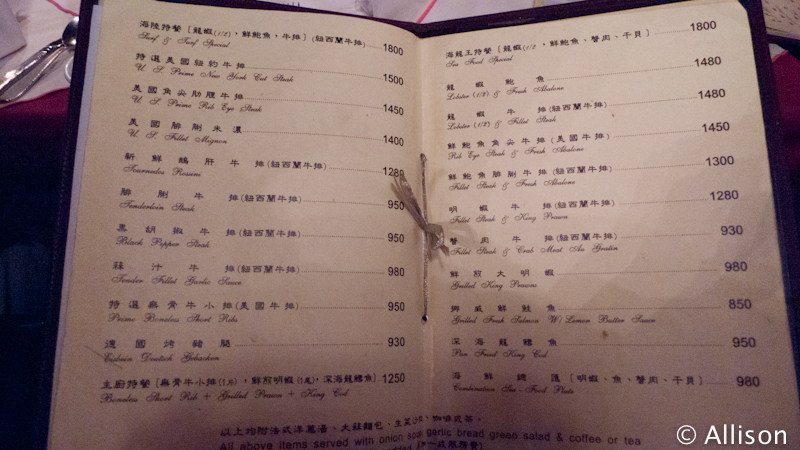 海陸特餐 [龍蝦(1/2)，鮮鮑魚，牛排] (紐西蘭牛排) 1800
Surf & Turf Special
特選美國紐約牛排 1500
U. S. Prime New York Cut Steak
美國角尖肋腰牛排 1450
U. S. Prime Rib Eye Steak
美國腓脷米濃 1400
U. S. Fillet Mignon
新鮮鵝肝牛排(紐西蘭牛排) 1280
Tournados Rossini
腓脷牛排(紐西蘭牛排) 950
Tenderloin Steak
黑胡椒牛排(紐西蘭牛排) 950
Black Pepper Steak
蒜汁牛排(紐西蘭牛排) 980
Tender Fillet Garlic Sauce
特選無骨牛小排(美國牛排) 950
Prime Boneless Short Ribs
德國烤豬腿 930
Eisbein Deutsch Gebacken
主廚特餐 [無骨牛小排(1片)，鮮煎明蝦(1尾)，深海龍鱈魚] 1250
Boneless Short Rib + Grilled Prawn + King Cod
以上均附法式洋蔥湯、大蒜麵包、生菜沙拉、咖啡或茶。
All above items served with onion soup garlic bread green salad & coffee or tea
海龍王特餐 [龍蝦(1/2)，鮮鮑魚、蟹肉、干貝] 1800
Sea Food Special
龍蝦鮑魚 1480
Lobster (1/2) & Fresh Abalone
龍蝦牛排(紐西蘭牛排) 1480
Lobster (1/2) & Fillet Steak
鮮鮑魚角尖牛排(美國牛排) 1450
Rib Eye Steak & Fresh Abalone
鮮鮑魚腓脷牛排(紐西蘭牛排) 1300
Fillet Steak & Fresh Abalone
明蝦牛排(紐西蘭牛排) 1280
Fillet Steak & King Prawn
蟹肉牛排(紐西蘭牛排) 930
Fillet Steak & Crab Meat Au Gratin
鮮煎大明蝦 980
Grilled King Prawns
挪威鮮鮭魚 850
Grilled Fresh Salmon W/ Lemon Butter Sauce
深海龍鱈魚 950
Pan Fried King Cod
海鮮總匯 [明蝦、魚、蟹肉、干貝] 980
Combination Sea-Food Plate
© Allison